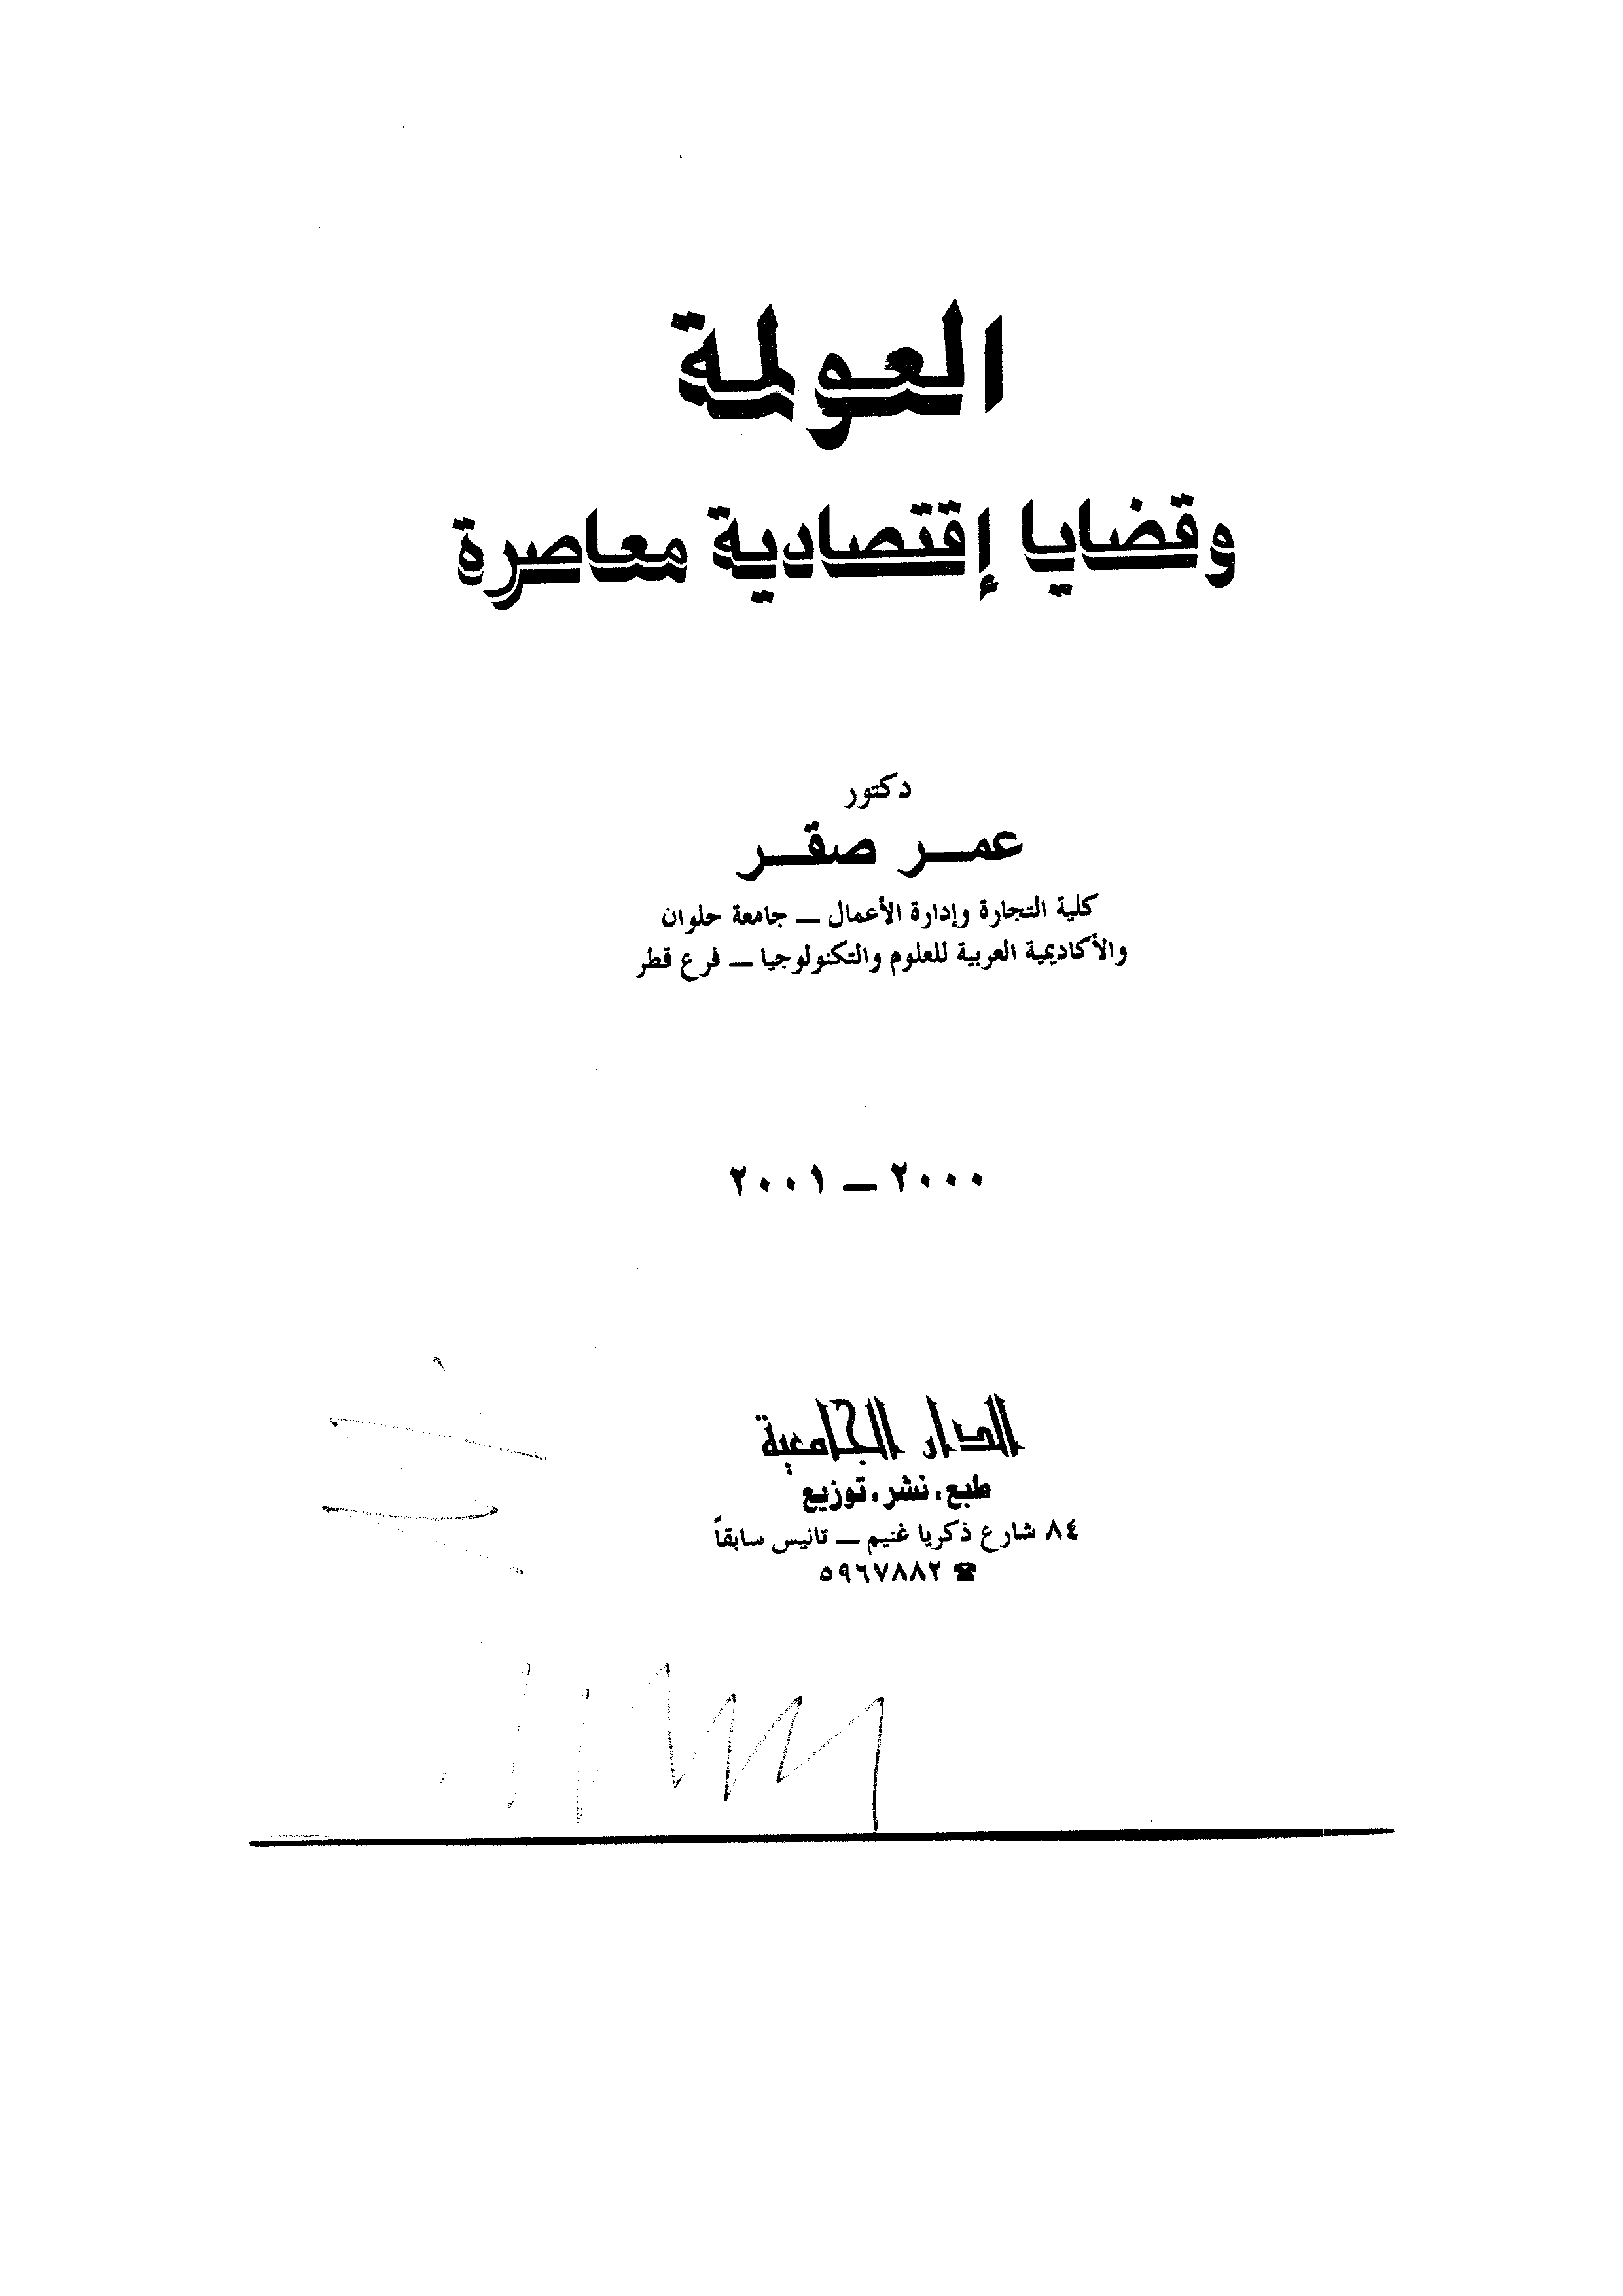 العولمة
وقضايا إقتصادية معاصرة
دكتور
عمـر صقـر
كلية التجارة وإدارة الأعمال — جامعة حلوان
والأكاديمية العربية للعلوم والتكنولوجيا — فرع قطر
٢٠٠٠ — ٢٠٠١
الدار الجامعية
طبع . نشر . توزيع
٨٤ شارع ذكريا غنيم — تانيس سابقاً
☎ ٥٩٦٧٨٨٢